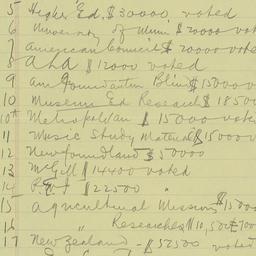 5 Higher Ed. $30000 voted
6 University of Minn $20000 vot
7 American Council $20000 vot
8 AHA $12000 voted
9 Am Foundation Blind $150000
10 Museums Ed Research $18500
10A Metropolitan $15000 votes
11 Music Study Material $15000 v
12 Newfoundland $50000
13 McGill $14400 voted
14 $22500 "
15 Agricultural Missions $15000
16 " Researches $10,500
17 New Zealand - $57500 voted